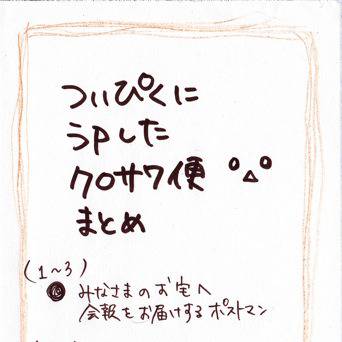 ついぴくに
うpした
クロサワ便
まとめ
(1~3)
みなさまのお宅へ
会報をお届けするポストマン